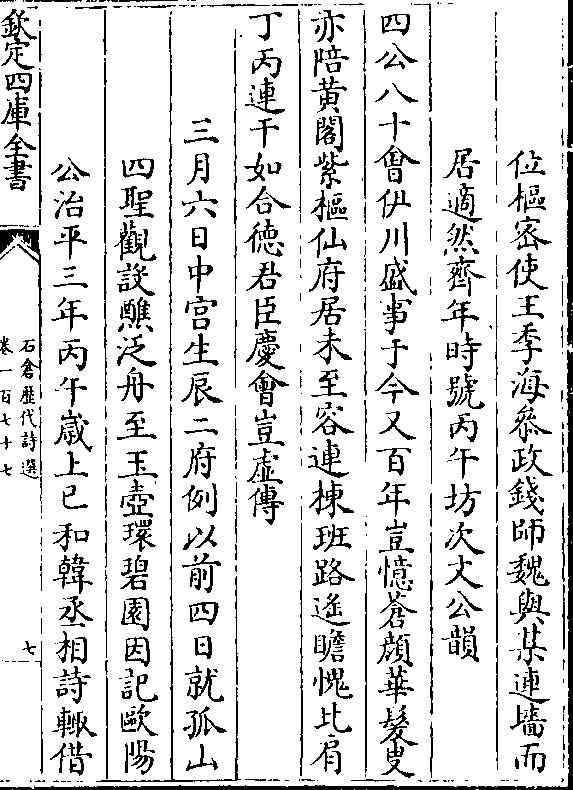 位樞密使王季海叅政錢師魏與某連墻而
居適然齊年時號丙午坊次丈公韻
四公八十㑹伊川盛事于今又百年豈憶蒼顔華髮叟
亦陪黄閣紫樞仙府居未至容連棟班路遙瞻愧比肩
丁丙連干如合德君臣慶㑹豈虚傳
三月六日中宫生辰二府例以前四日就孤山
四聖觀設醮泛舟至玉壺環碧園因記歐陽
公治平三年丙午歲上巳和韓丞相詩輙借
欽定四庫全書
石倉歷代詩選
卷一百七十七
七